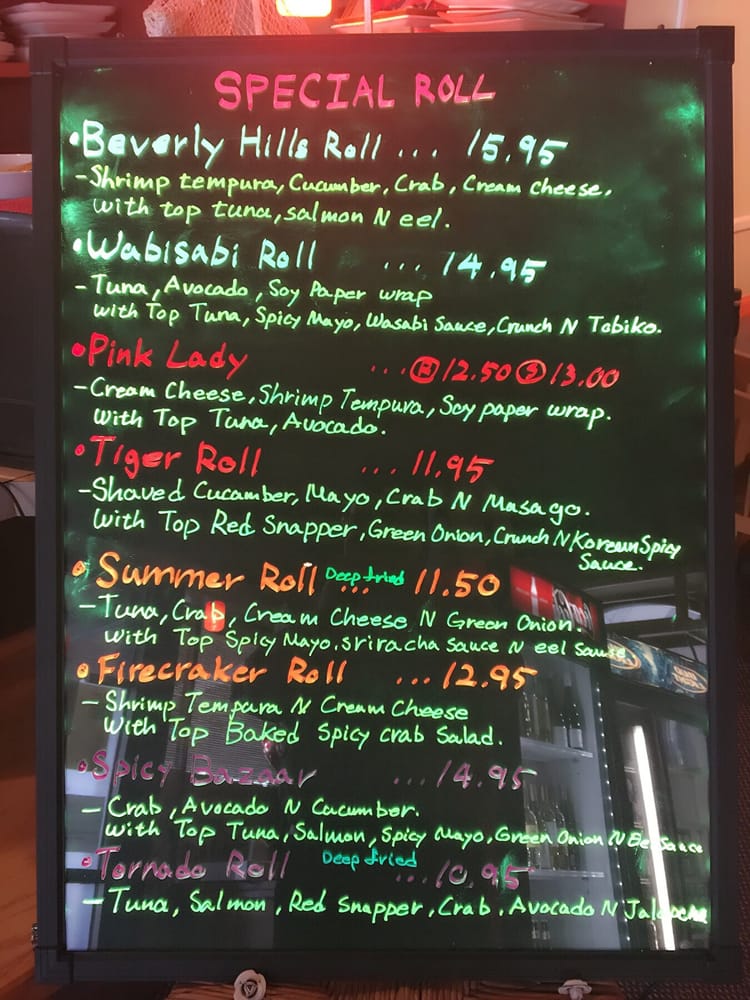 SPECIAL ROLL
•Beverly Hills Roll ... 15.95
-Shrimp tempura, Cucumber, Crab, Cream cheese,
with top tuna, salmon N eel.
•Wabisabi Roll ... 14.95
-Tuna, Avocado, Soy Paper wrap
with Top Tuna, Spicy Mayo, Wasabi Sauce, Crunch N Tobiko.
•Pink Lady ... Ⓗ12.50 Ⓢ13.00
-Cream Cheese, Shrimp Tempura, Soy paper wrap.
with Top Tuna, Avocado.
•Tiger Roll ... 11.95
-Shaved Cucamber, Mayo, Crab N Masago.
with Top Red Snapper, Green Onion, Crunch N Korean Spicy
Sauce.
•Summer Roll Deep fried ... 11.50
-Tuna, Crab, Cream Cheese N Green Onion.
with Top Spicy Mayo, sriracha sauce N eel sauce
•Firecraker Roll ... 12.95
- Shrimp Tempura N Cream Cheese
with Top Baked Spicy crab Salad.
•Spicy Bazaar ... 14.95
- Crab, Avocado N Cucumber.
with Top Tuna, Salmon, Spicy Mayo, Green Onion N Eel Sauce
•Tornado Roll Deep fried ... 10.95
- Tuna, Salmon, Red snapper, Crab, Avocado N Jalapeno